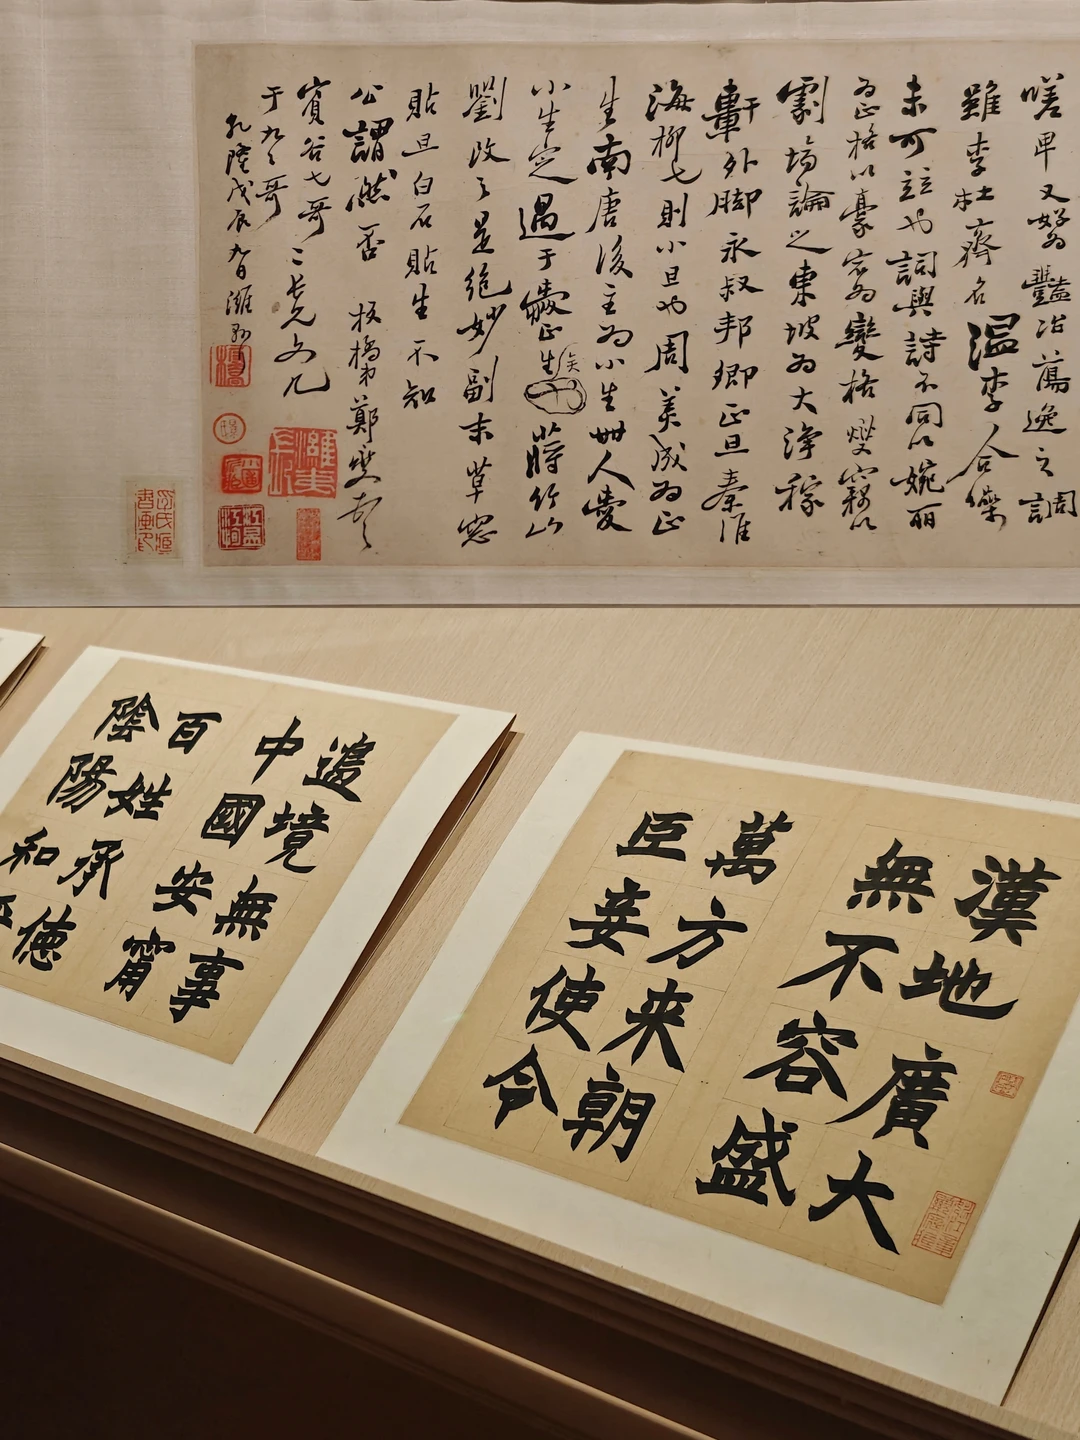 嗟卑又好為豔冶蕩逸之調
雖李杜齊名溫李合
未可並也詞與詩不同以婉丽
為正格以豪宕為變格燮竊以
劇場論之東坡為大淨稼
軒外脚永叔邦卿正旦秦淮
海柳七則小旦也周美成為正
生南唐後主為小生世人愛
小生定過于愛正生矣蔣竹山
劉改之是絕妙副末草窗
貼旦白石貼生不知
公謂然否 板橋弟鄭燮頓首
賓谷七哥二長兄文几
于九之哥
乾隆戊辰九日濰縣
漢地廣大
無不容盛
萬方来朝
臣妾使令
邊境無事
中國安甯
百姓承德
陰陽和